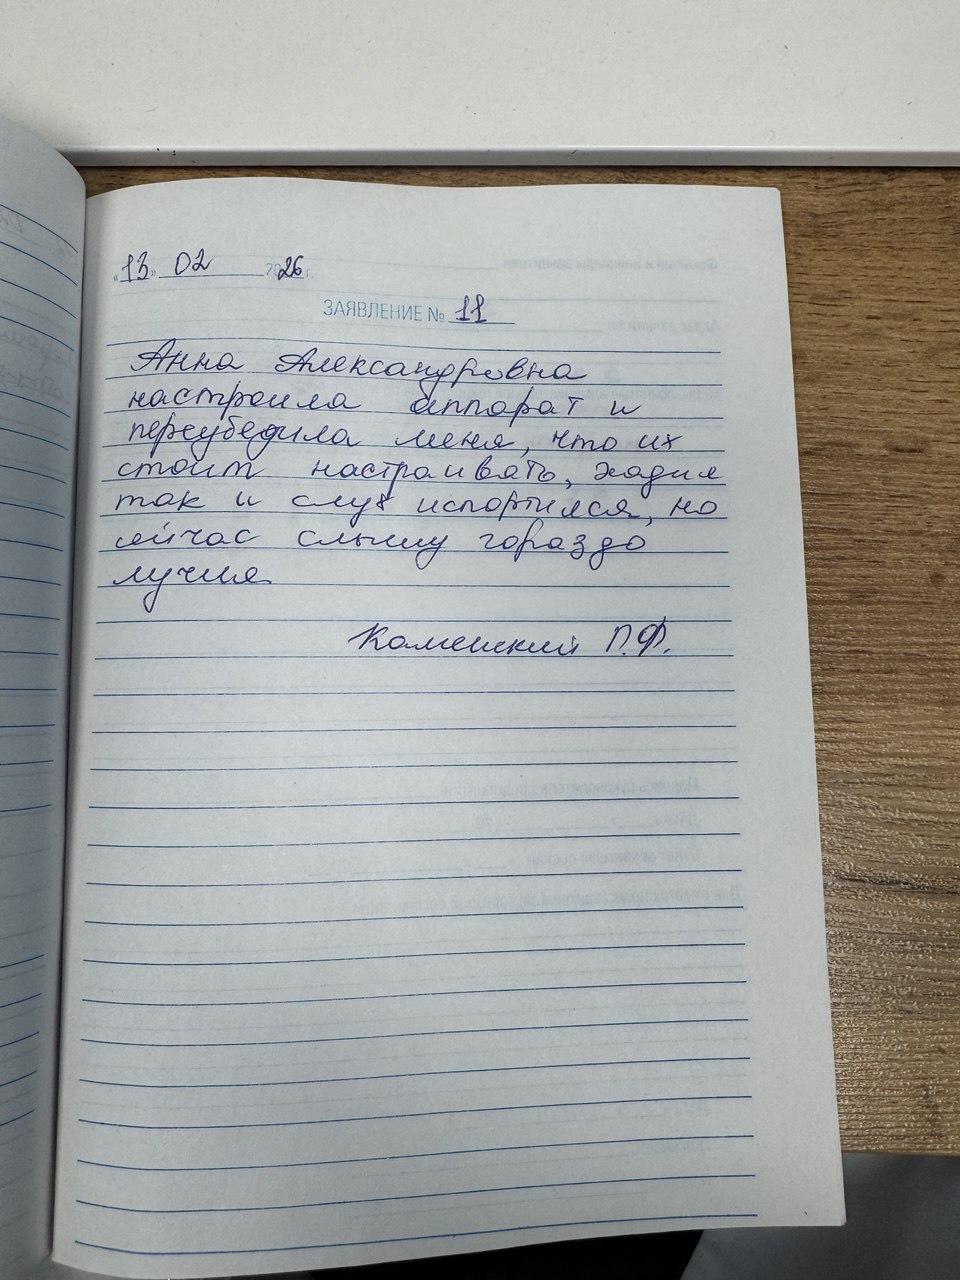 «13» 02 2026 г.
ЗАЯВЛЕНИЕ № 11
Анна Александровна
настроила аппарат и
переубедила меня, что их
стоит настраивать, ходил
так и слух испортился, но
сейчас слышу гораздо
лучше
Каменский П.Ф.